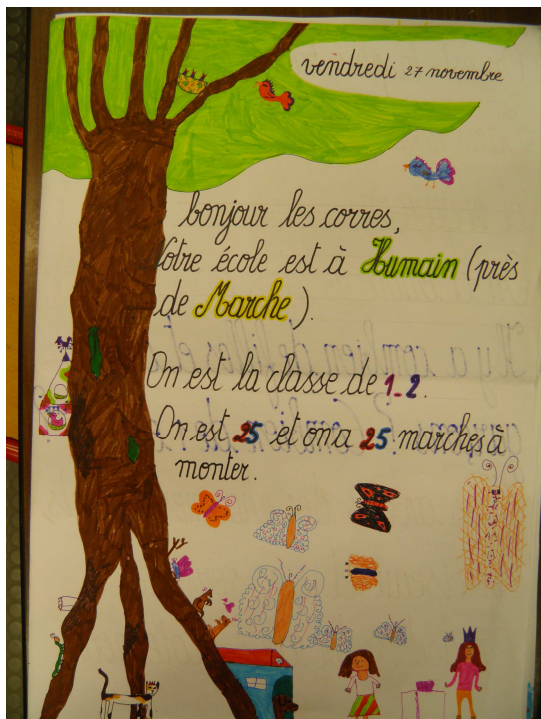 vendredi 27 novembre
bonjour les corres,
Notre école est à Humain (près
de Marche).
On est la classe de 1-2.
On est 25 et on a 25 marches à
monter.